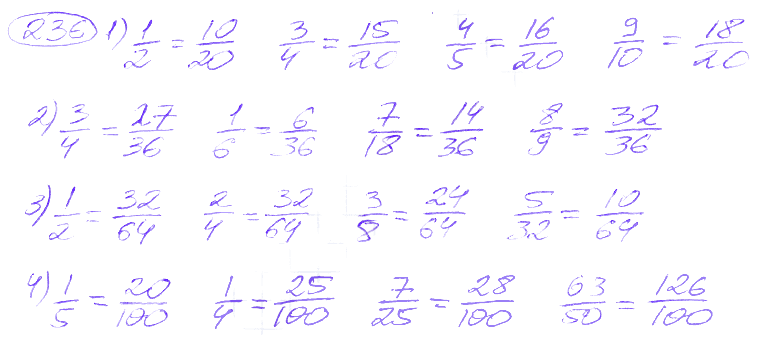 236 1) 1/2 = 10/20 3/4 = 15/20 4/5 = 16/20 9/10 = 18/20
2) 3/4 = 27/36 1/6 = 6/36 7/18 = 14/36 8/9 = 32/36
3) 1/2 = 32/64 2/4 = 32/64 3/8 = 24/64 5/32 = 10/64
4) 1/5 = 20/100 1/4 = 25/100 7/25 = 28/100 63/50 = 126/100